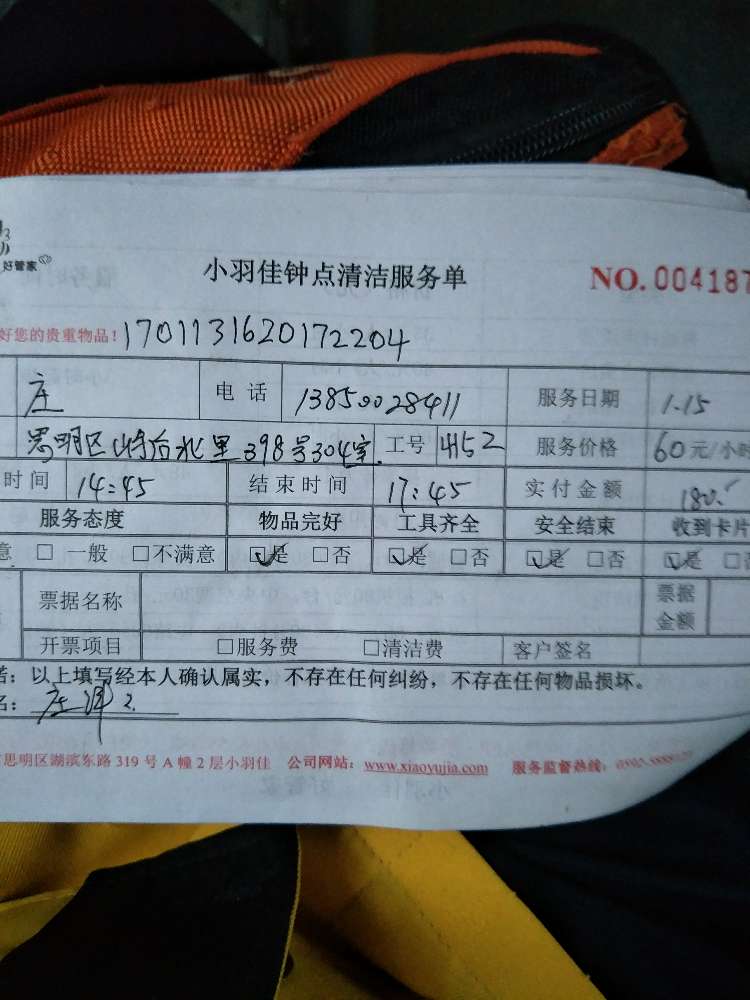 好管家
小羽佳钟点清洁服务单 NO.004187
好您的贵重物品！1701131620172204
庄 电话 13850028411 服务日期 1.15
思明区 后 里398号304室 工号 4152 服务价格 60元/小时
时间 14:45 结束时间 17:45 实付金额 180.
服务态度 物品完好 工具齐全 安全结束 收到卡片
意 □一般 □不满意 ☑是 □否 ☑是 □否 ☑是 □否 ☑是 □
票据名称 票据金额
开票项目 □服务费 □清洁费 客户签名
诺：以上填写经本人确认属实，不存在任何纠纷，不存在任何物品损坏。
名：庄
思明区湖滨东路319号A幢2层小羽佳 公司网站：www.xiaoyujia.com 服务监督热线：